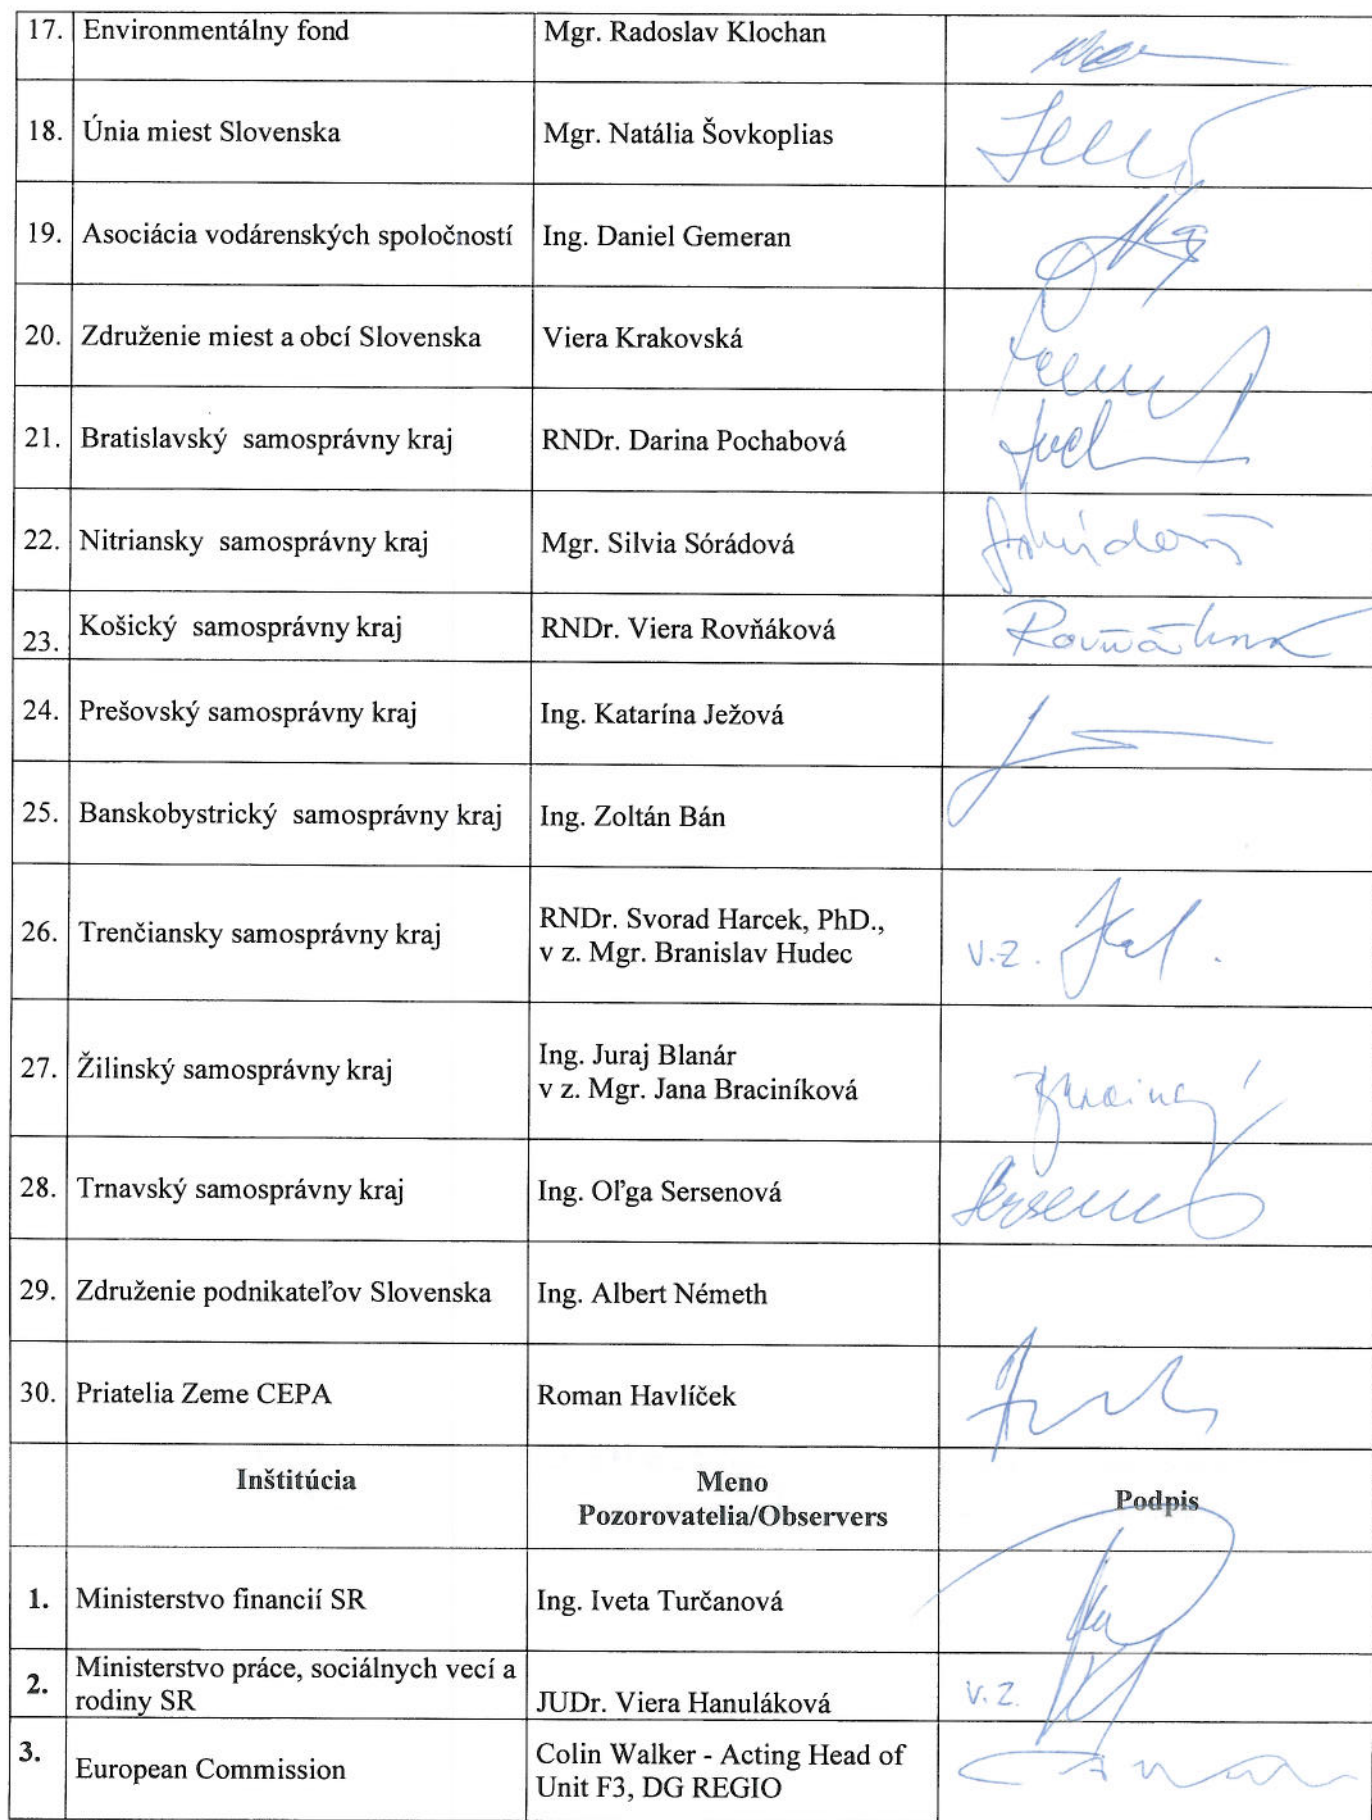 17. Environmentálny fond Mgr. Radoslav Klochan
18. Únia miest Slovenska Mgr. Natália Šovkoplias
19. Asociácia vodárenských spoločností Ing. Daniel Gemeran
20. Združenie miest a obcí Slovenska Viera Krakovská
21. Bratislavský samosprávny kraj RNDr. Darina Pochabová
22. Nitriansky samosprávny kraj Mgr. Silvia Sórádová
23. Košický samosprávny kraj RNDr. Viera Rovňáková
24. Prešovský samosprávny kraj Ing. Katarína Ježová
25. Banskobystrický samosprávny kraj Ing. Zoltán Bán
26. Trenčiansky samosprávny kraj RNDr. Svorad Harcek, PhD.,
v z. Mgr. Branislav Hudec v.z.
27. Žilinský samosprávny kraj Ing. Juraj Blanár
v z. Mgr. Jana Braciníková
28. Trnavský samosprávny kraj Ing. Oľga Sersenová
29. Združenie podnikateľov Slovenska Ing. Albert Németh
30. Priatelia Zeme CEPA Roman Havlíček
Inštitúcia Meno
Pozorovatelia/Observers Podpis
1. Ministerstvo financií SR Ing. Iveta Turčanová
2. Ministerstvo práce, sociálnych vecí a
rodiny SR JUDr. Viera Hanuláková v.z.
3. European Commission Colin Walker - Acting Head of
Unit F3, DG REGIO